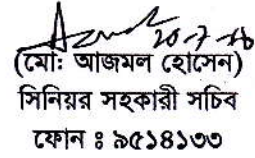 20-7-16
(মোঃ আজমল হোসেন)
সিনিয়র সহকারী সচিব
ফোন ঃ ৯৫১৪১৩৩